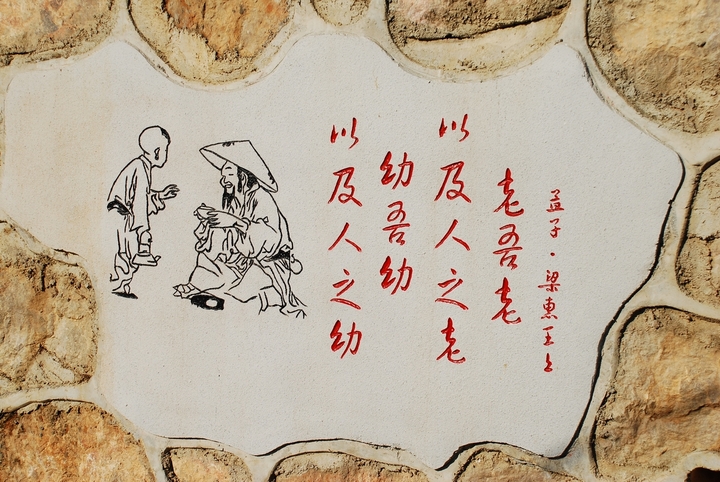 孟子·梁惠王上
老吾老
以及人之老
幼吾幼
以及人之幼